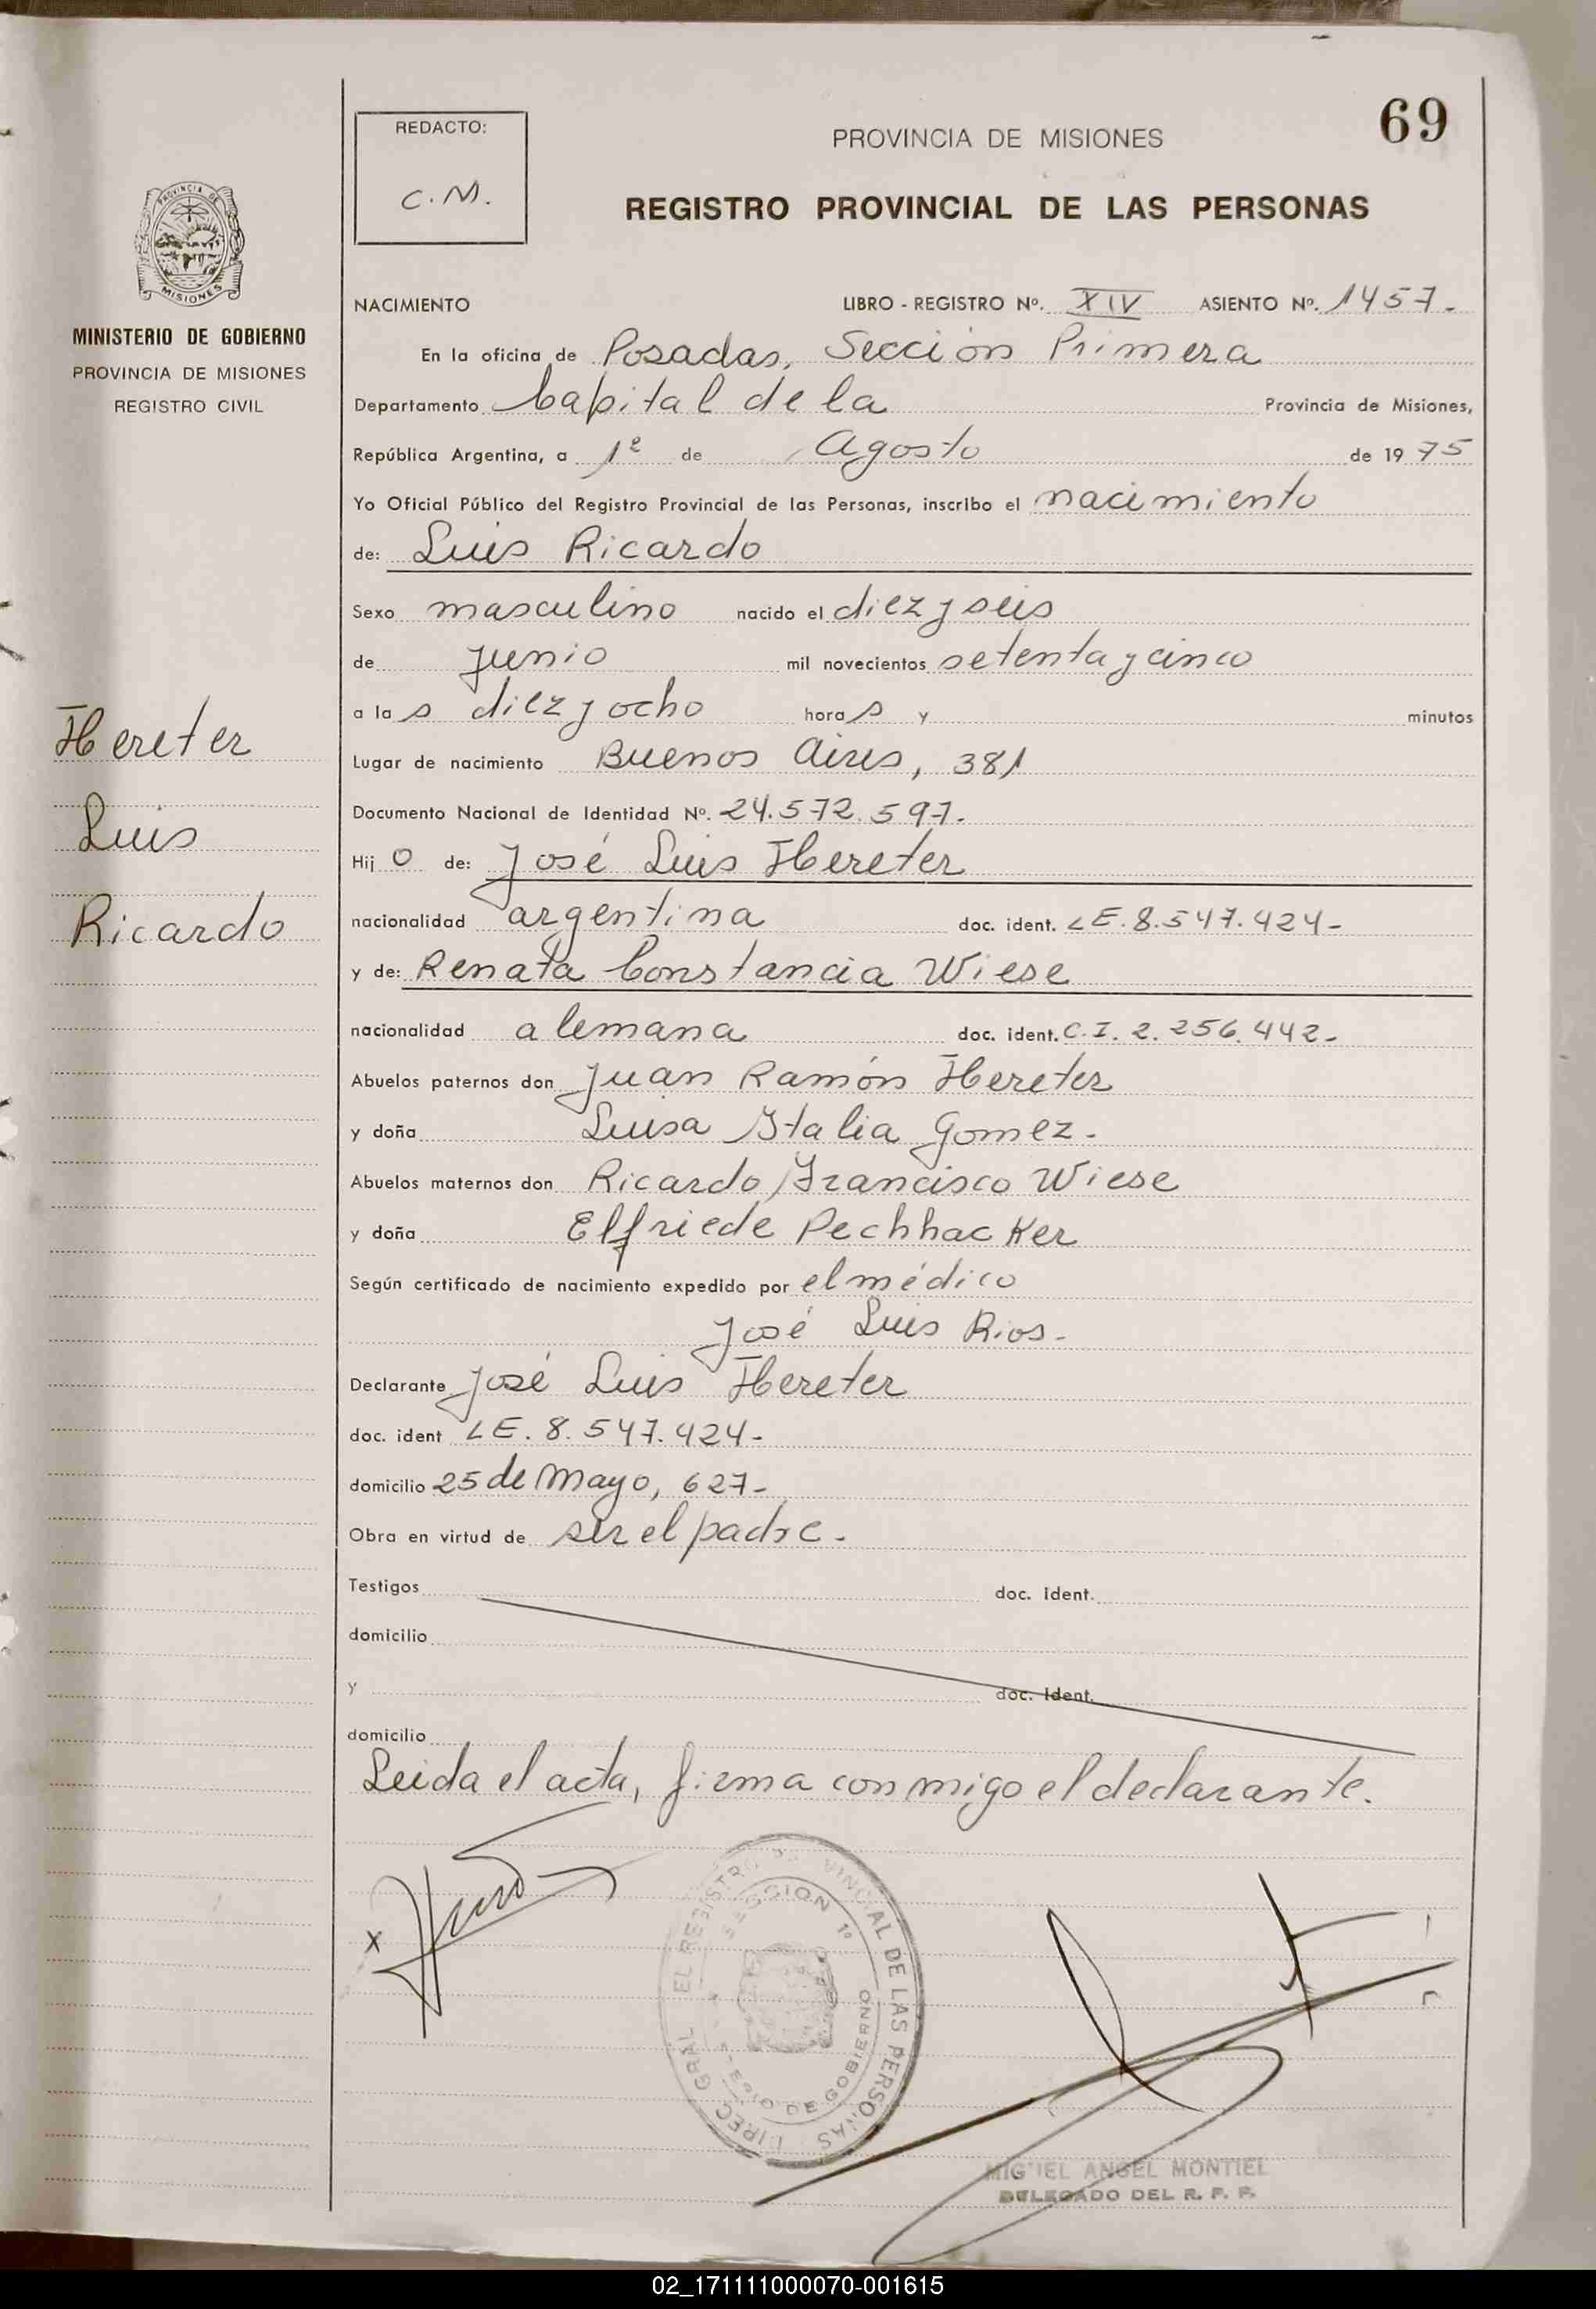 69
REDACTO:
C.M.
PROVINCIA DE MISIONES
REGISTRO PROVINCIAL DE LAS PERSONAS
PROVINCIA DE
MISIONES
MINISTERIO DE GOBIERNO
PROVINCIA DE MISIONES
REGISTRO CIVIL
Hereter
Luis
Ricardo
NACIMIENTO LIBRO - REGISTRO Nº. XIV ASIENTO Nº. 1457.-
En la oficina de Posadas, Sección Primera
Departamento Capital de la Provincia de Misiones,
República Argentina, a 1º de Agosto de 1975
Yo Oficial Público del Registro Provincial de las Personas, inscribo el nacimiento
de: Luis Ricardo
Sexo masculino nacido el diez y seis
de junio mil novecientos setenta y cinco
a las diez y ocho horas y minutos
Lugar de nacimiento Buenos Aires, 381
Documento Nacional de Identidad Nº. 24.572.597.-
Hijo de: José Luis Hereter
nacionalidad argentina doc. ident. LE. 8.547.424-
y de: Renata Constancia Wiese
nacionalidad alemana doc. ident. C.I. 2.256.442-
Abuelos paternos don Juan Ramón Hereter
y doña Luisa Italia Gomez.-
Abuelos maternos don Ricardo Francisco Wiese
y doña Elfriede Pechhacker
Según certificado de nacimiento expedido por el médico
José Luis Rios-
Declarante José Luis Hereter
doc. ident LE. 8.547.424-
domicilio 25 de Mayo, 627-
Obra en virtud de ser el padre.-
Testigos doc. ident.
domicilio
y doc. ident.
domicilio
Leida el acta, firma conmigo el declarante.
x
DIREC GRAL EL REGISTRO PROVINCIAL DE LAS PERSONAS
SECCION 1º
MINISTERIO DE GOBIERNO
MIGUEL ANGEL MONTIEL
DELEGADO DEL R. P. P.
02_171111000070-001615